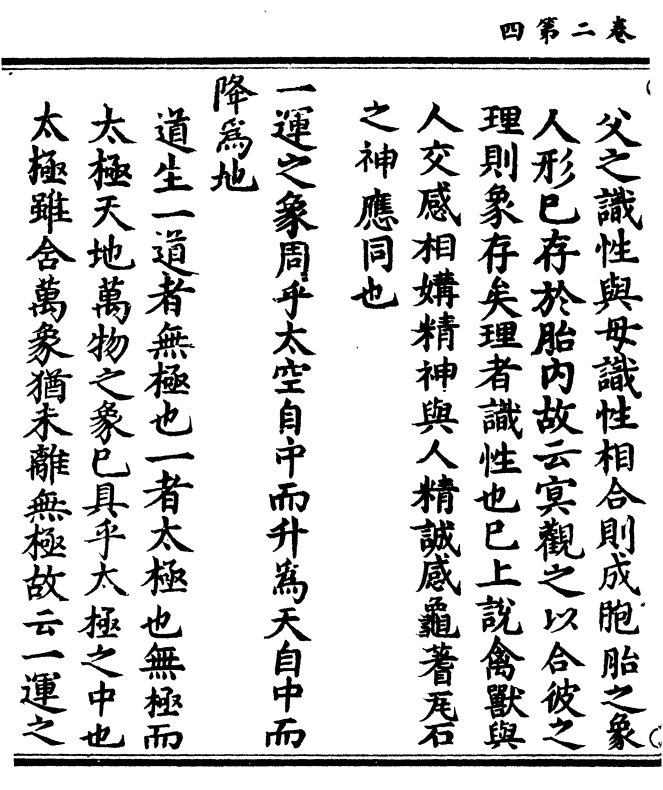 卷二第四
父之識性與母識性相合則成胞胎之象
人形已存於胎內故云冥觀之以合彼之
理則象存矣理者識性也已上說禽獸與
人交感相媾精神與人精誠感龜蓍瓦石
之神應同也
一運之象周乎太空自中而升為天自中而
降為地
道生一道者無極也一者太極也無極而
太極天地萬物之象已具乎太極之中也
太極雖含萬象猶未離無極故云一運之